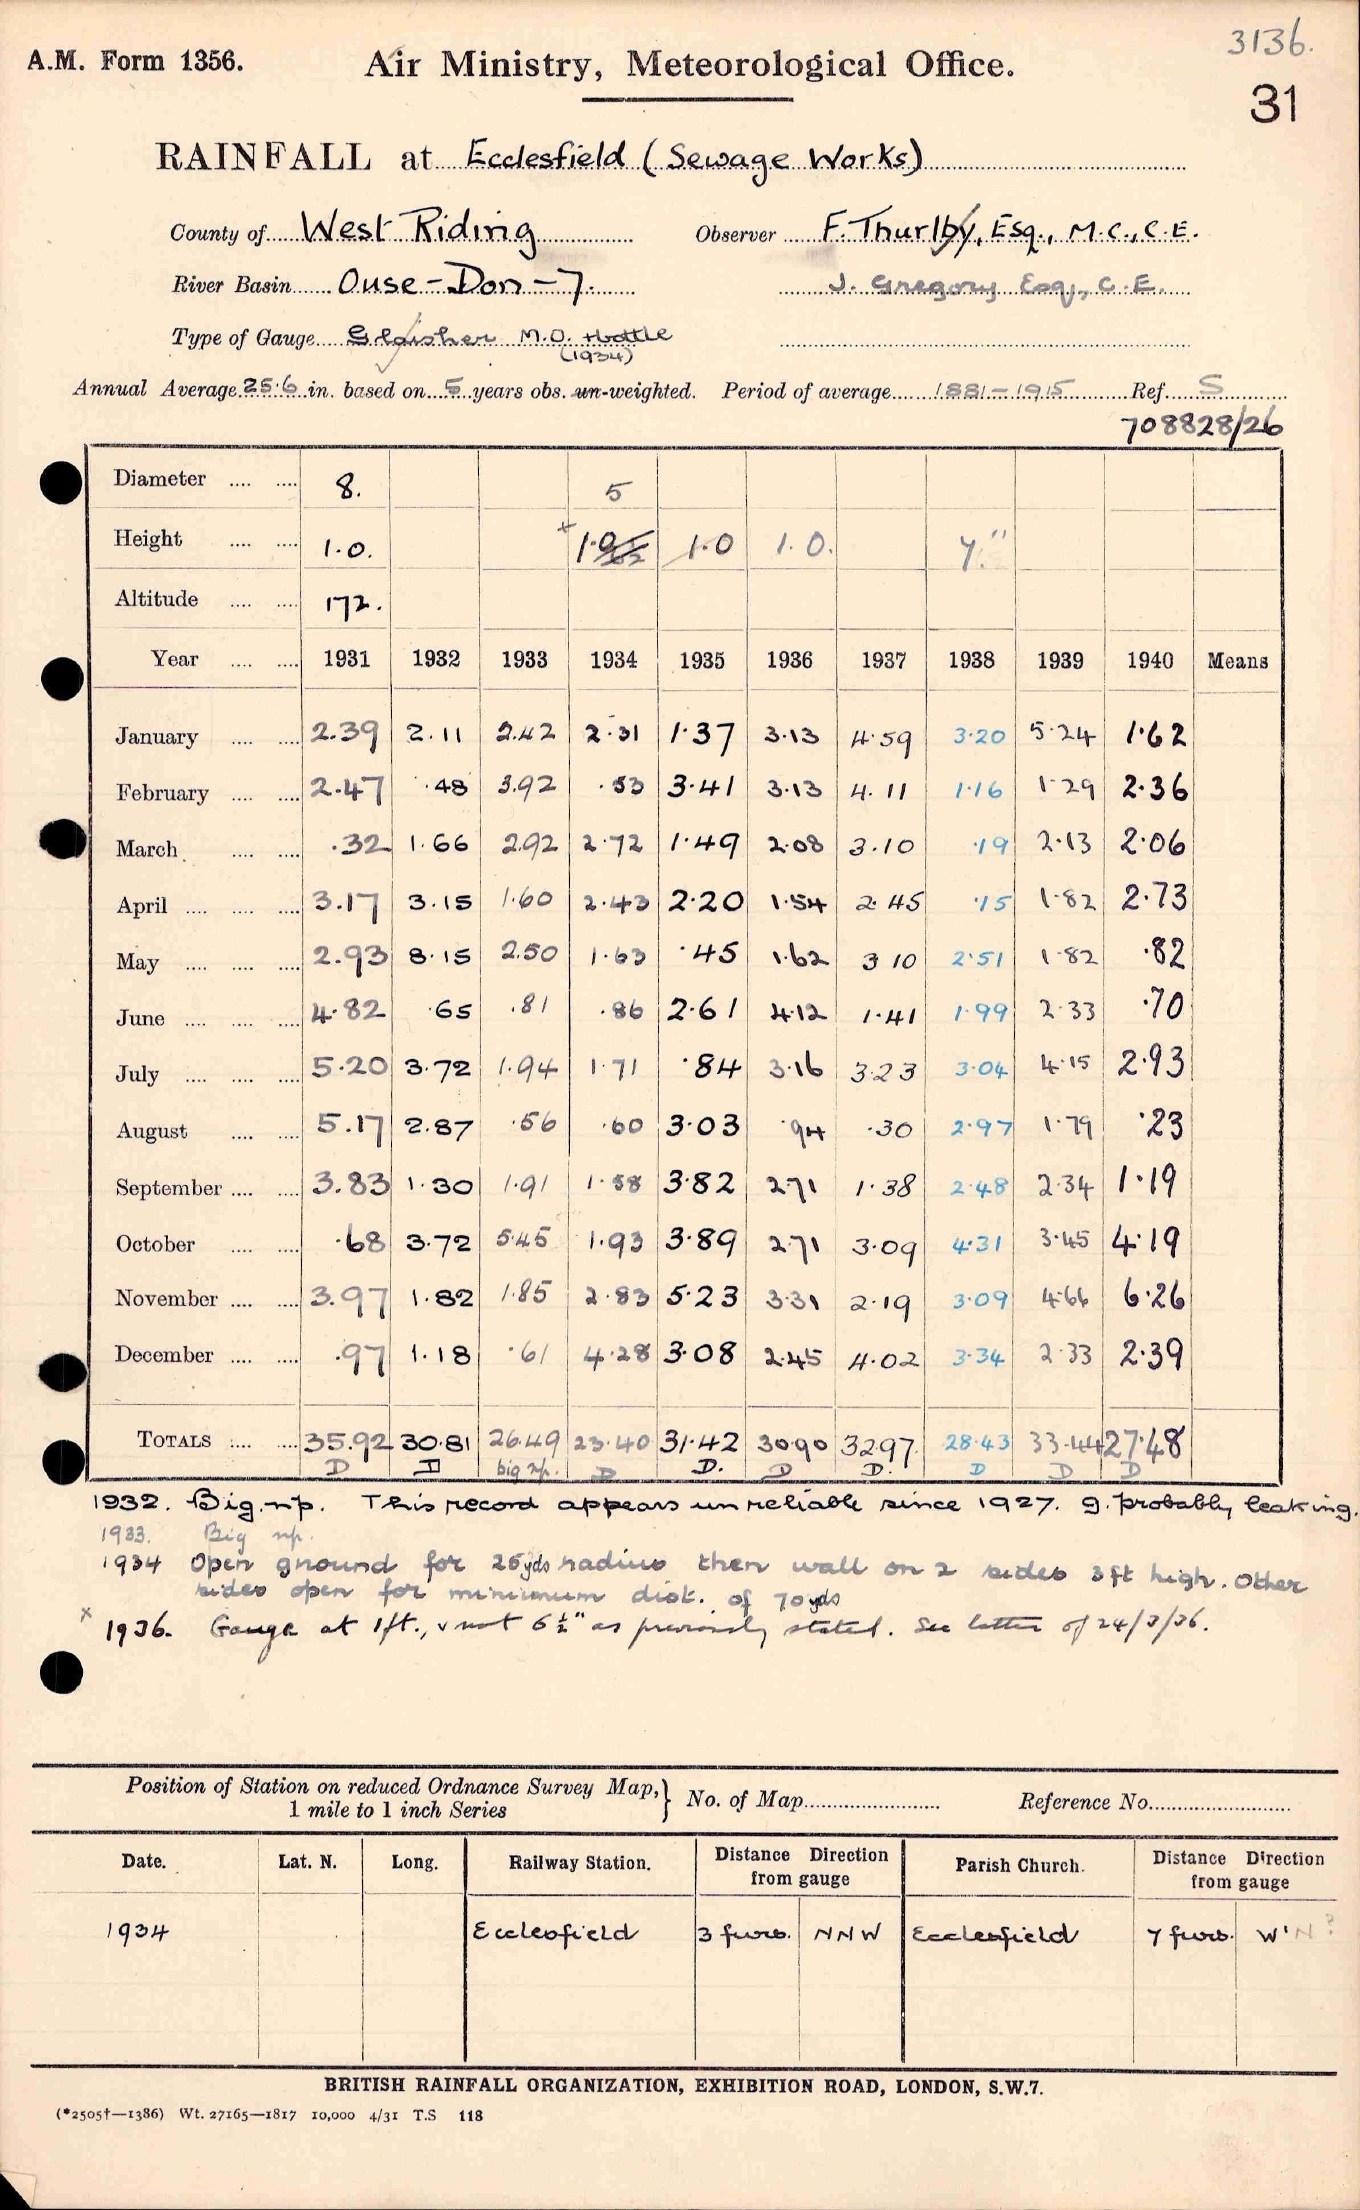 3136.
A.M. Form 1356. Air Ministry, Meteorological Office.
31
RAINFALL at Ecclesfield (Sewage Works)
County of West Riding Observer F. Thurlby, Esq., M.C., C.E.
River Basin Ouse - Don - 7. J. Gregory Esq., C.E.
Type of Gauge Glaisher M.O. + bottle
(1934)
Annual Average 25.6 in. based on 5 years obs. un-weighted. Period of average 1881-1915 Ref. S
708828/26
Diameter .... .... 8. 5
Height .... .... 1.0. x 1.0 1.0 7."
Altitude .... .... 172.
Year .... .... 1931 1932 1933 1934 1935 1936 1937 1938 1939 1940 Means
January .... .... 2.39 2.11 2.42 2.31 1.37 3.13 4.59 3.20 5.24 1.62
February .... .... 2.47 .48 3.92 .53 3.41 3.13 4.11 1.16 1.29 2.36
March .... .... .32 1.66 2.92 2.72 1.49 2.08 3.10 .19 2.13 2.06
April .... .... .... 3.17 3.15 1.60 2.43 2.20 1.54 2.45 .15 1.82 2.73
May .... .... .... 2.93 8.15 2.50 1.63 .45 1.62 3 10 2.51 1.82 .82
June .... .... .... 4.82 .65 .81 .86 2.61 4.12 1.41 1.99 2.33 .70
July .... .... .... 5.20 3.72 1.94 1.71 .84 3.16 3.23 3.04 4.15 2.93
August .... .... 5.17 2.87 .56 .60 3.03 .94 .30 2.97 1.79 .23
September .... .... 3.83 1.30 1.91 1.58 3.82 2.71 1.38 2.48 2.34 1.19
October .... .... .68 3.72 5.45 1.93 3.89 2.71 3.09 4.31 3.45 4.19
November .... .... 3.97 1.82 1.85 2.83 5.23 3.31 2.19 3.09 4.66 6.26
December .... .... .97 1.18 .61 4.28 3.08 2.45 4.02 3.34 2.33 2.39
TOTALS .... .... 35.92 30.81 26.49 23.40 31.42 30.90 32.97 28.43 33.44 27.48
D D big np. D D. D D. D D D
1932. Big. np. This record appears unreliable since 1927. g. probably leaking.
1933. Big np.
1934 Open ground for 25yds radius then wall on 2 sides 3ft high. Other
sides open for minimum dist. of 70yds
x 1936. Gauge at 1ft., & not 6½" as previously stated. See letter of 24/3/36.
Position of Station on reduced Ordnance Survey Map,} No. of Map Reference No.
1 mile to 1 inch Series
Date. Lat. N. Long. Railway Station. Distance Direction Parish Church. Distance Direction
from gauge from gauge
1934 Ecclesfield 3 furs. NNW Ecclesfield 7 furs. W'N?
BRITISH RAINFALL ORGANIZATION, EXHIBITION ROAD, LONDON, S.W.7.
(*2505†—1386) Wt. 27165—1817 10,000 4/31 T.S 118